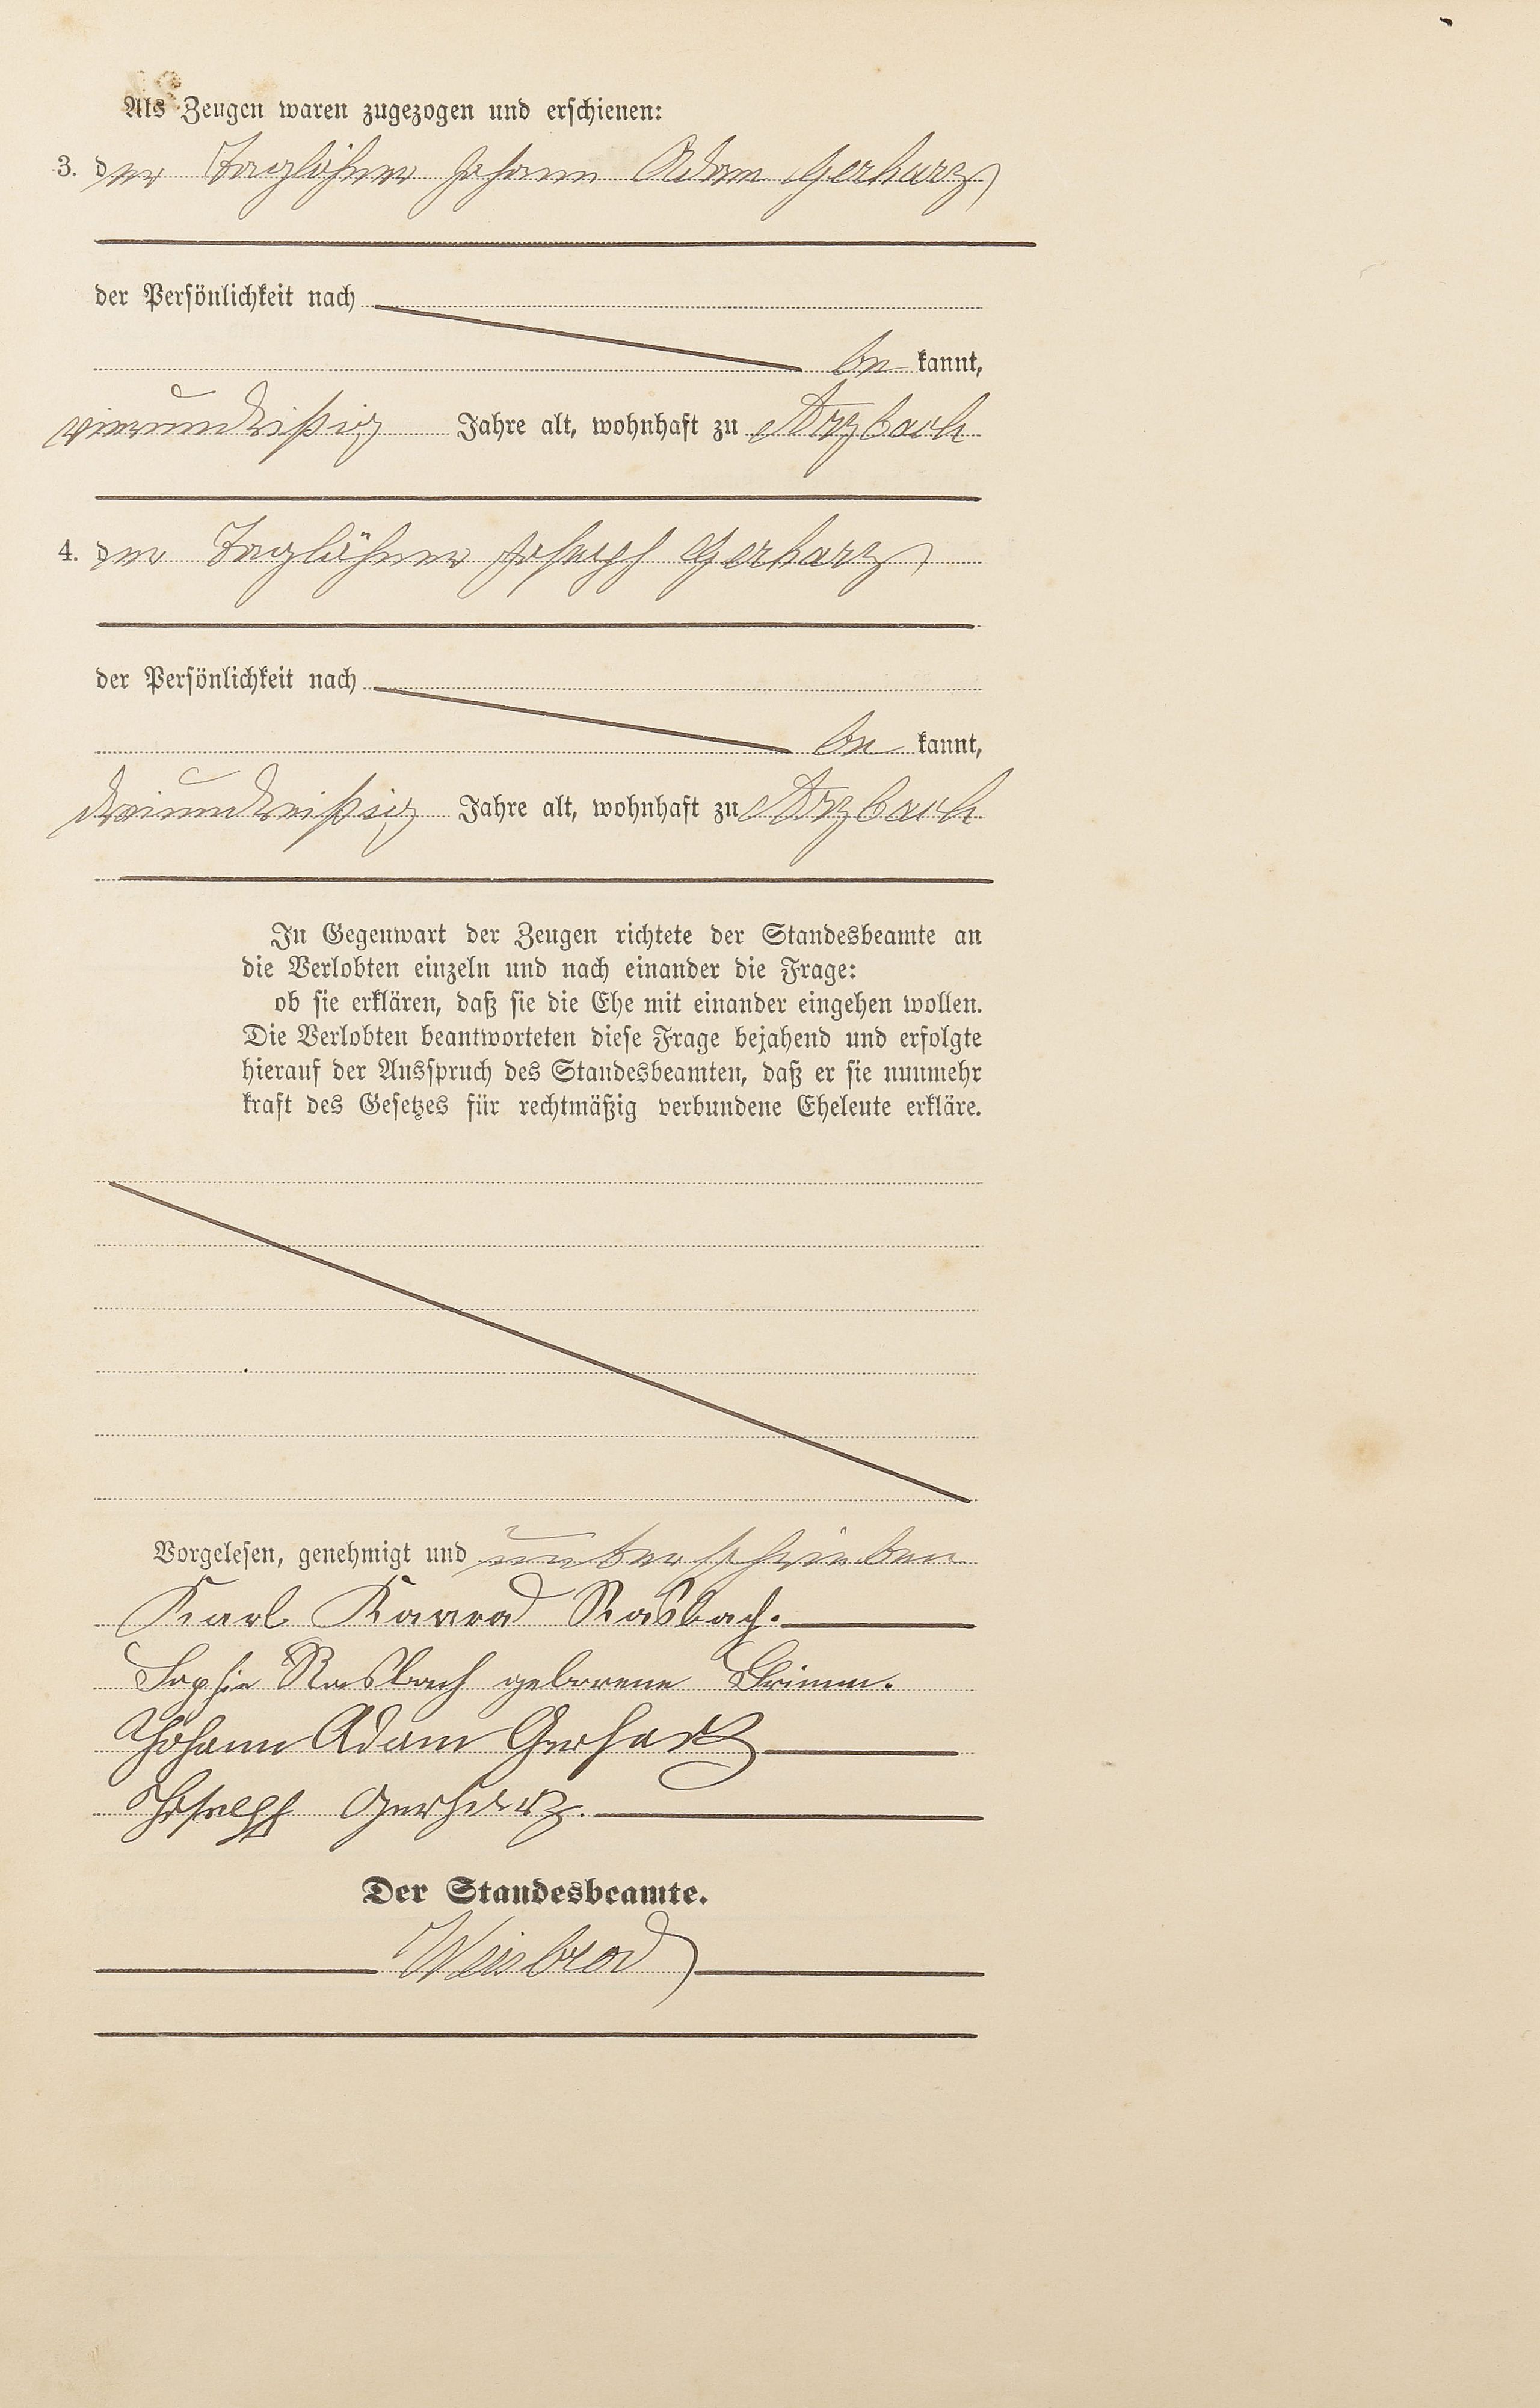 Als Zeugen waren zugezogen und erschienen:
3. der Taglöhner Johann Adam Gerharz
der Persönlichkeit nach
be kannt,
vierunddreißig Jahre alt, wohnhaft zu Arzbach
4. der Taglöhner Joseph Gerharz
der Persönlichkeit nach
be kannt,
dreiunddreißig Jahre alt, wohnhaft zu Arzbach
In Gegenwart der Zeugen richtete der Standesbeamte an
die Verlobten einzeln und nach einander die Frage:
ob sie erklären, daß sie die Ehe mit einander eingehen wollen.
Die Verlobten beantworteten diese Frage bejahend und erfolgte
hierauf der Ausspruch des Standesbeamten, daß er sie nunmehr
kraft des Gesetzes für rechtmäßig verbundene Eheleute erkläre.
Vorgelesen, genehmigt und unterschrieben
Karl Konrad Rasbach.
Sophie Rasbach geborene Grimm.
Johann Adam Gerharz
Joseph Gerharz.
Der Standesbeamte.
Weisbrod